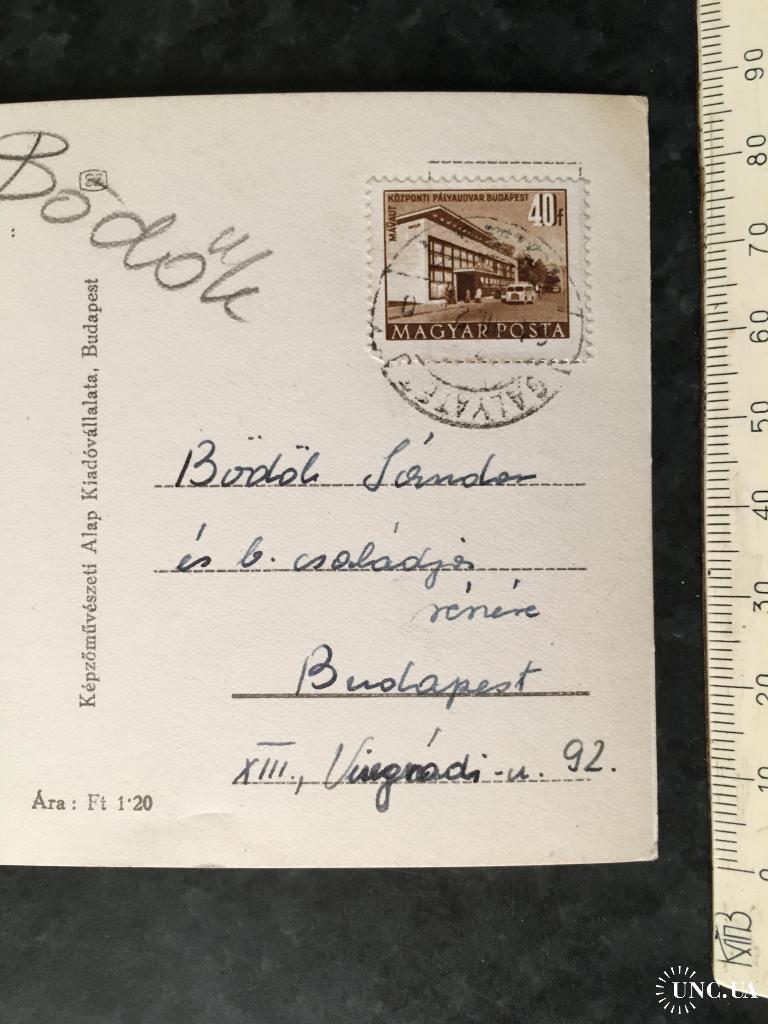 Bödők
MÁVAUT KÖZPONTI PÁLYAUDVAR BUDAPEST
40f
MAGYAR POSTA
GALYATETŐ
Képzőművészeti Alap Kiadóvállalata, Budapest
Bödők Sándor
és b. családja
részére
Budapest
XIII., Visegrádi-u. 92.
Ára: Ft 1·20
90
80
70
60
50
40
30
20
10
0
UNC.UA